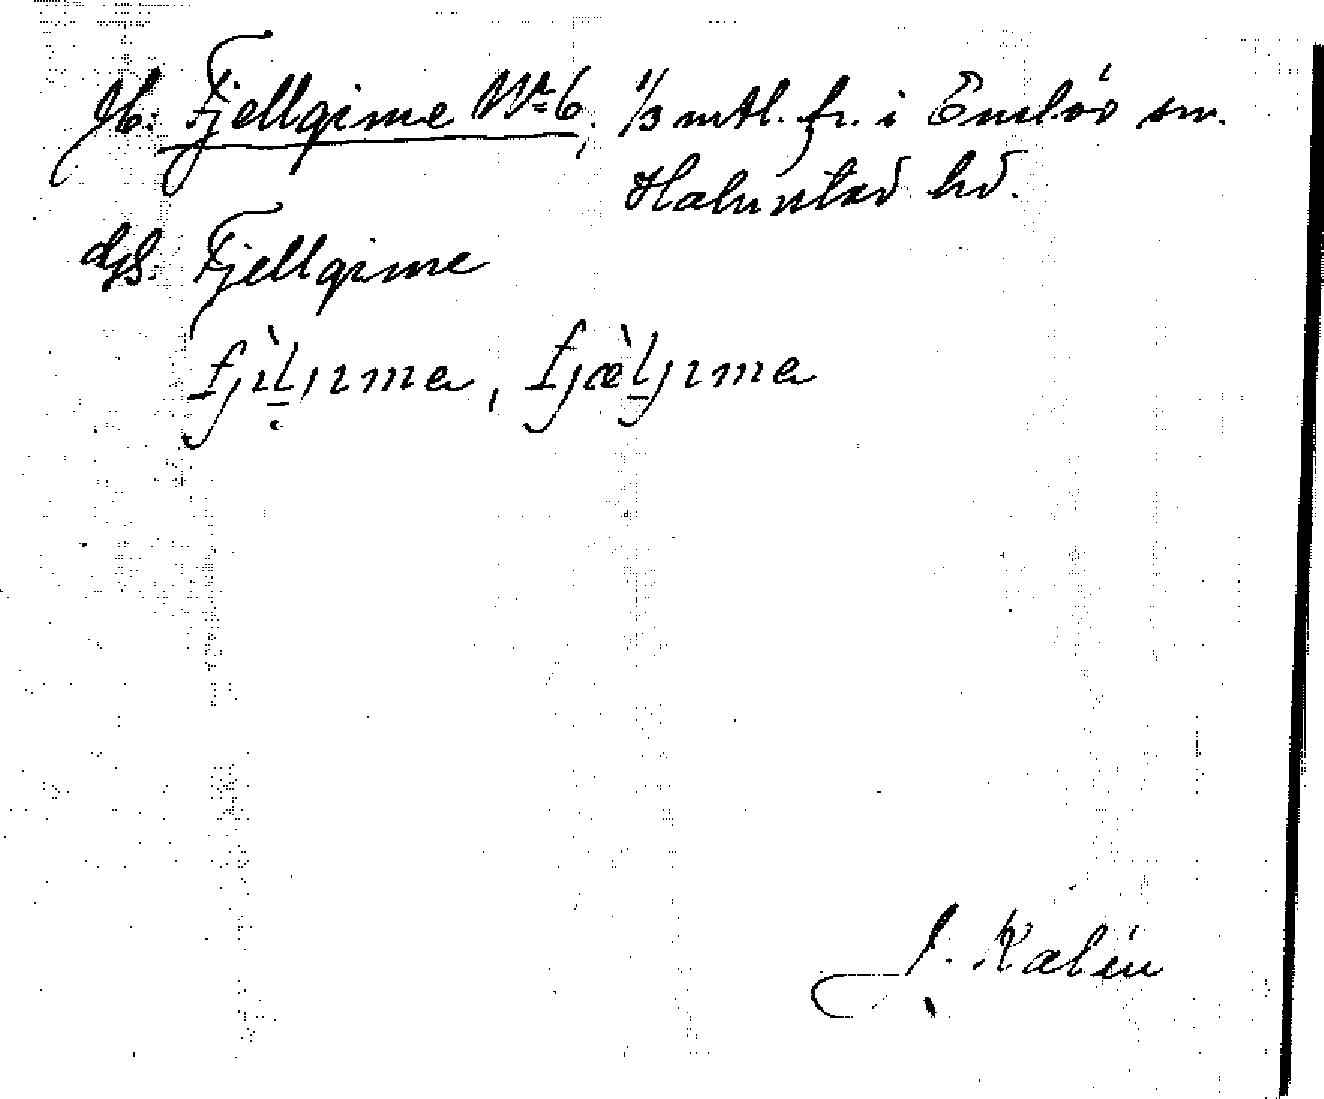 Jb: Fjellgime No 6, 1/3 mtl. fr. i Enslöv sn.
Halmstad hd.
GS: Fjellgime
fjìljıma, fjæ̀ljıma
J. Kalén